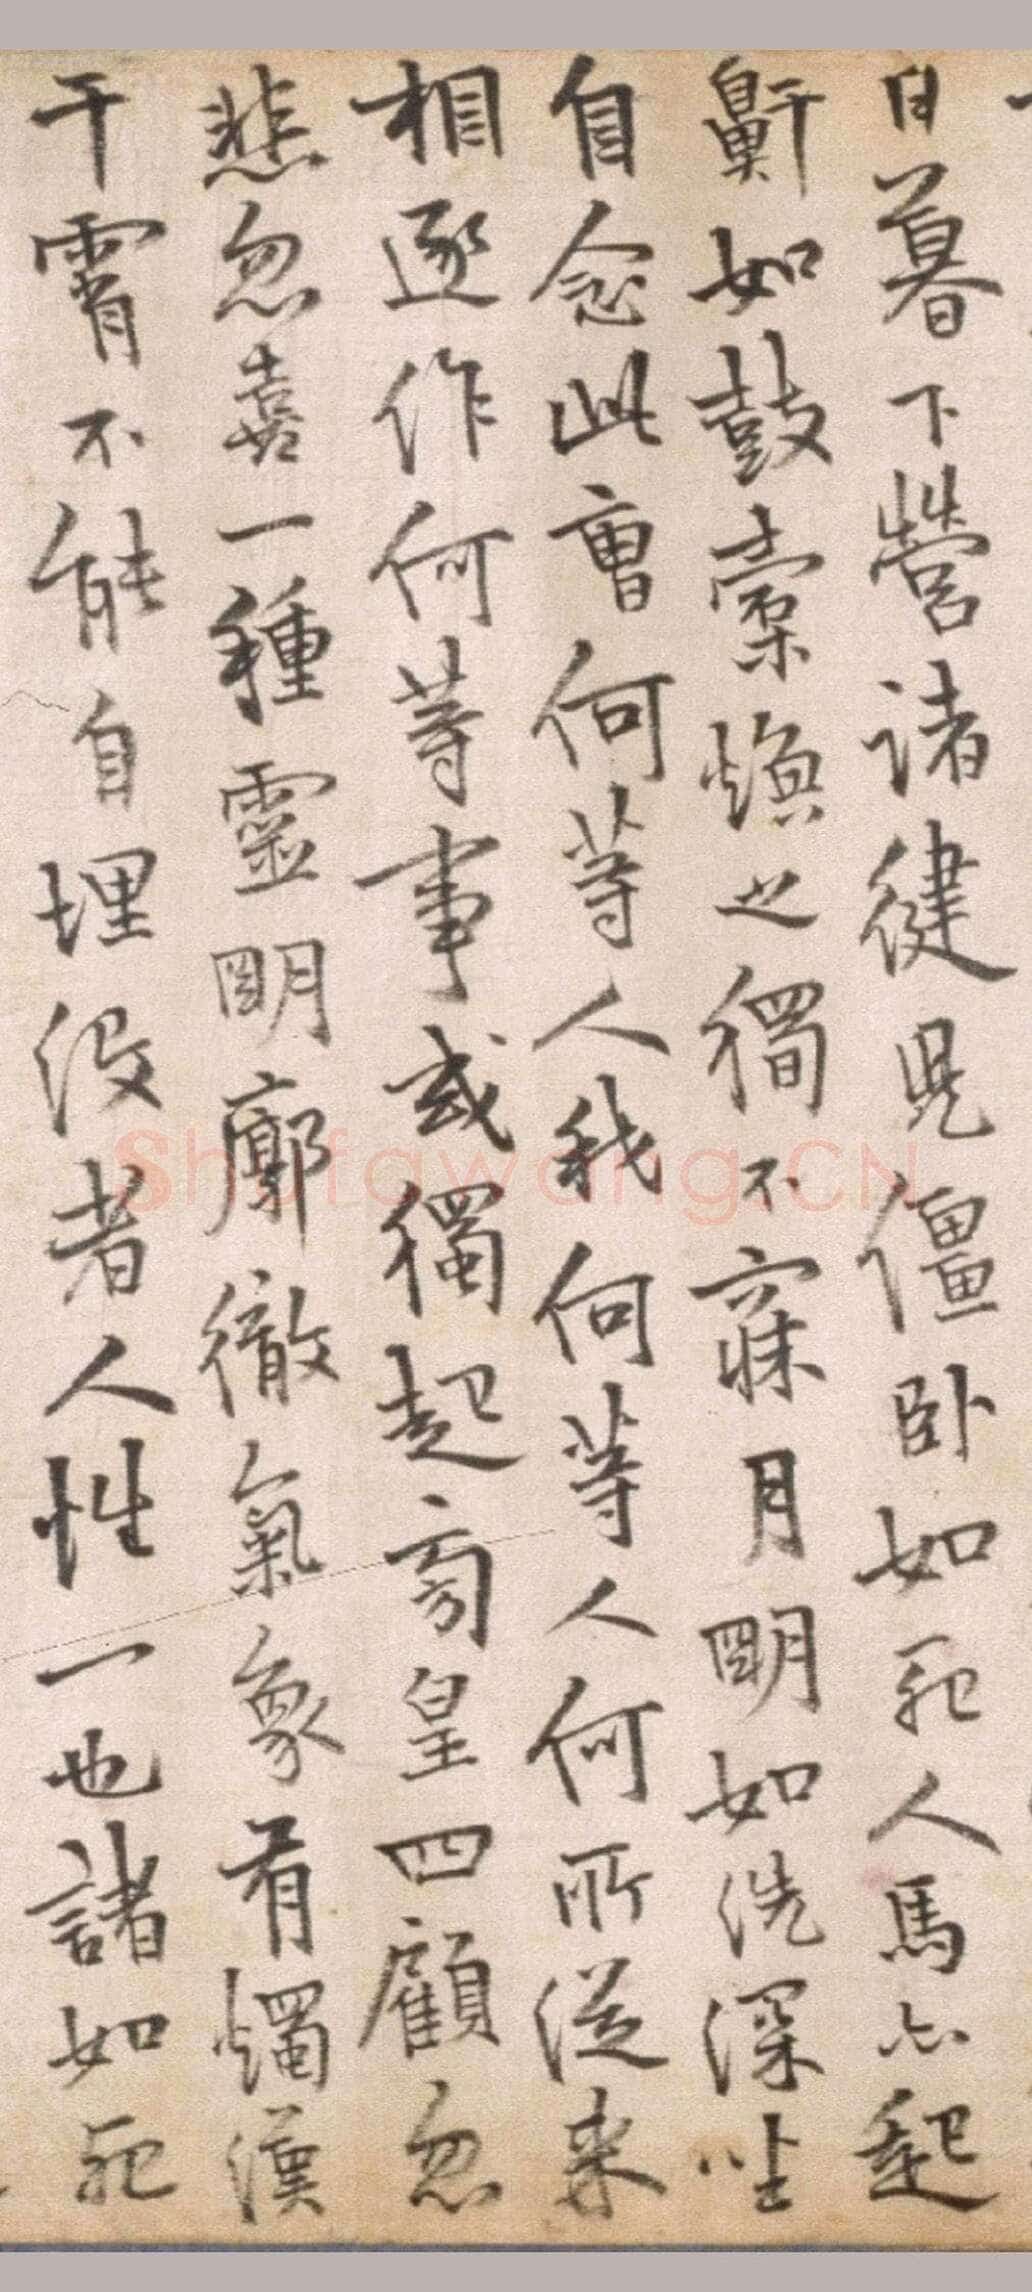 日暮下營諸健兒僵卧如死人馬亦起
鼾如鼓橐煥之獨不寐月明如洗深坐
自念此曹何等人我何等人何所從來
相逐作何等事或獨起彷皇四顧忽
悲忽喜一種靈明廓徹氣象有燭漢
干霄不能自埋没者人性一也諸如死
Shufawang.CN